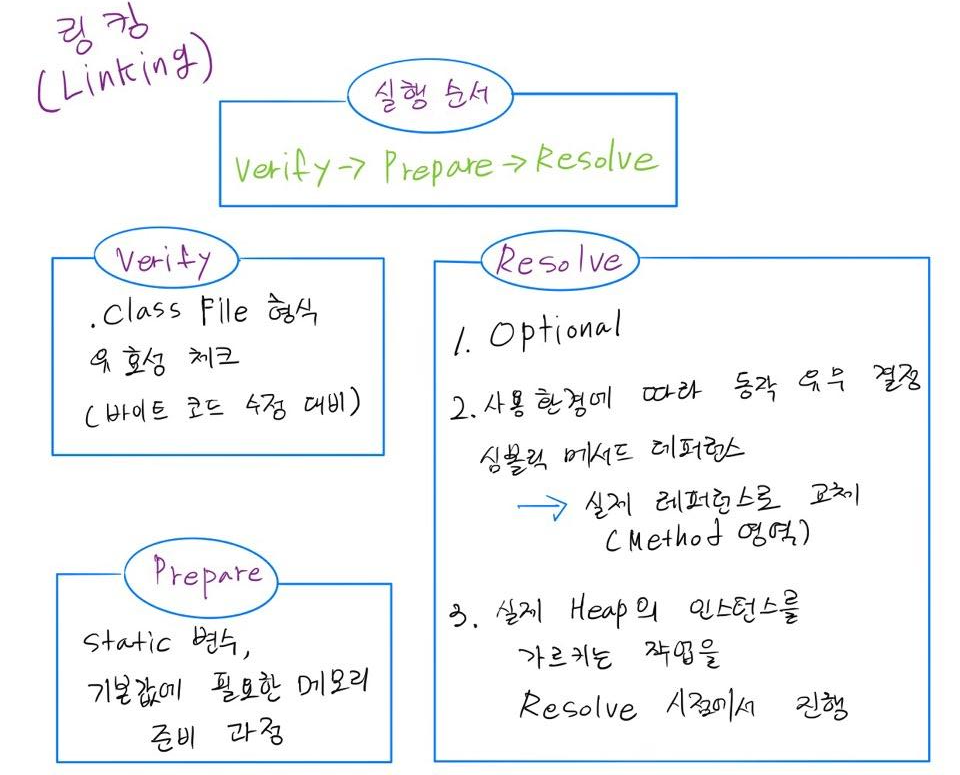 링킹
(Linking)
실행 순서
Verify → Prepare → Resolve
Verify
.Class File 형식
유효성 체크
(바이트 코드 수정 대비)
Prepare
static 변수,
기본값에 필요한 메모리
준비 과정
Resolve
1. Optional
2. 사용환경에 따라 동작 유무 결정
심볼릭 메서드 레퍼런스
→ 실제 레퍼런스로 교체
(Method 영역)
3. 실제 Heap의 인스턴스를
가르키는 작업을
Resolve 시점에서 진행